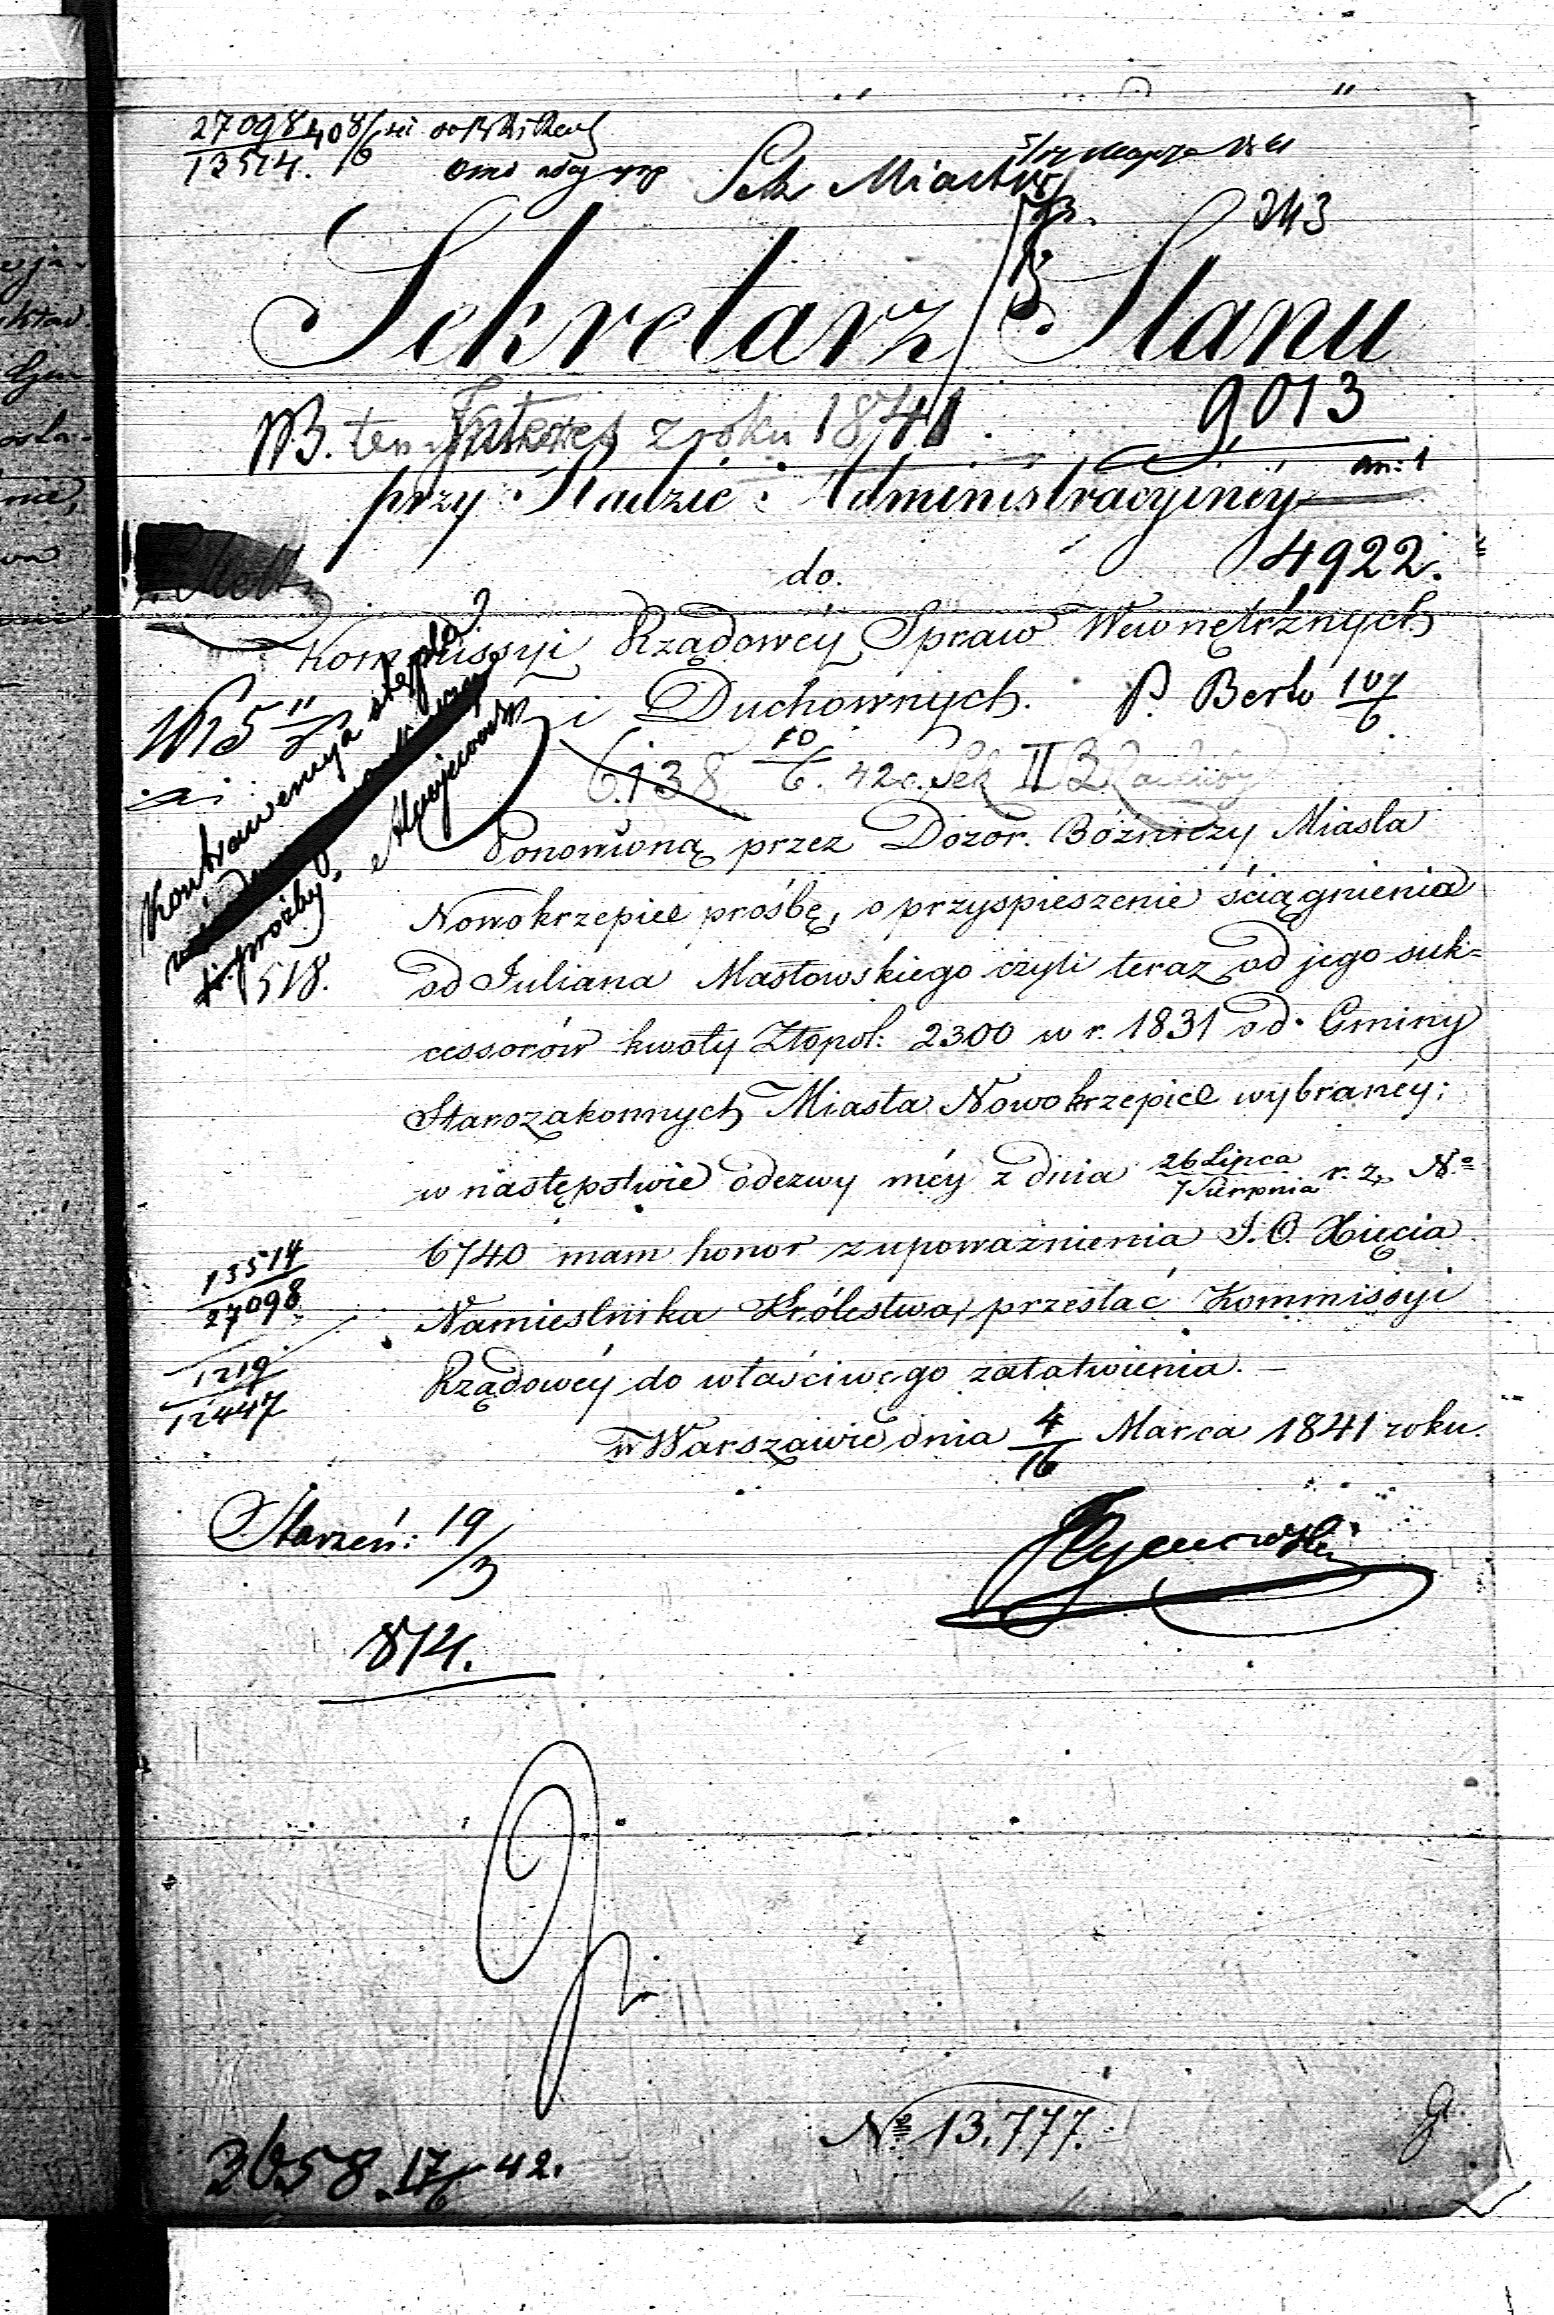 27098
13514.
Sek Miast
243
Sekretarz Stanu
9013
NB. ten Interes z roku 1841.
przy Radzie Administracyinéy
4922.
do
Kommissyi Rządowéy Spraw Wewnętrznych
i Duchownych. P. Berlo 10/6
6.138 10/6. 42 c. Sek II
Kontrawencya stępla?
prożby.
518.
Ponowioną przez Dozór Bóżniczy Miasta
Nowokrzepice prośbę, o przyspieszenie ściągnienia
od Juliana Masłowskiego czyli teraz od jego suk=
cessorów kwoty Złopol: 2300 w r. 1831 od Gminy
Starozakonnych Miasta Nowokrzepice wybranéy;
w następstwie odezwy méy z dnia 26 Lipca / 7 Sierpnia r. z. No
6740 mam honor z upoważnienia J. O. Xięcia
Namiestnika Królestwa, przesłać Kommissyi
Rządowéy do właściwego załatwienia. —
w Warszawie dnia 4/16 Marca 1841 roku.
13514
27098
1219
12447
Starzeń: 19/3
814.
No 13.777.
3658. 17/6 42.